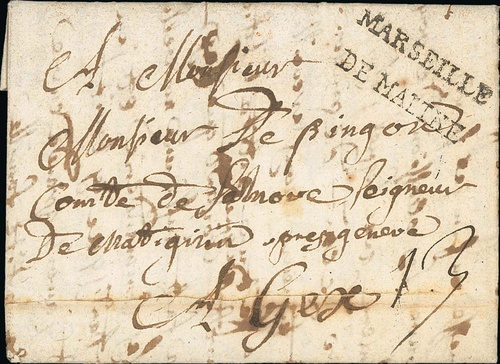 MARSEILLE
DE MALTHE
A Monsieur
Monsieur De
Comte De Seigneur
De pres geneve
A Gex 13